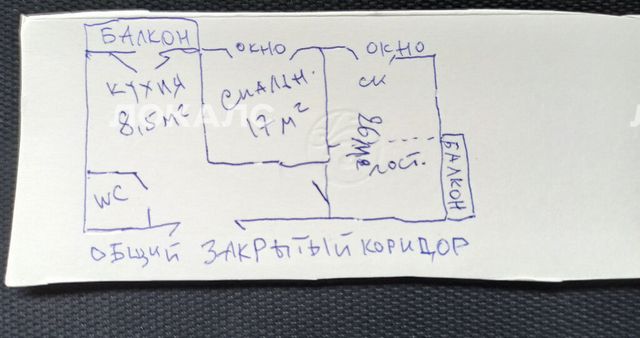 БАЛКОН
ОКНО ОКНО
КУХНЯ
8,5 м²
СПАЛЬН.
17 м²
26 м²
гост.
БАЛКОН
WC
ОБЩИЙ ЗАКРЫТЫЙ КОРИДОР